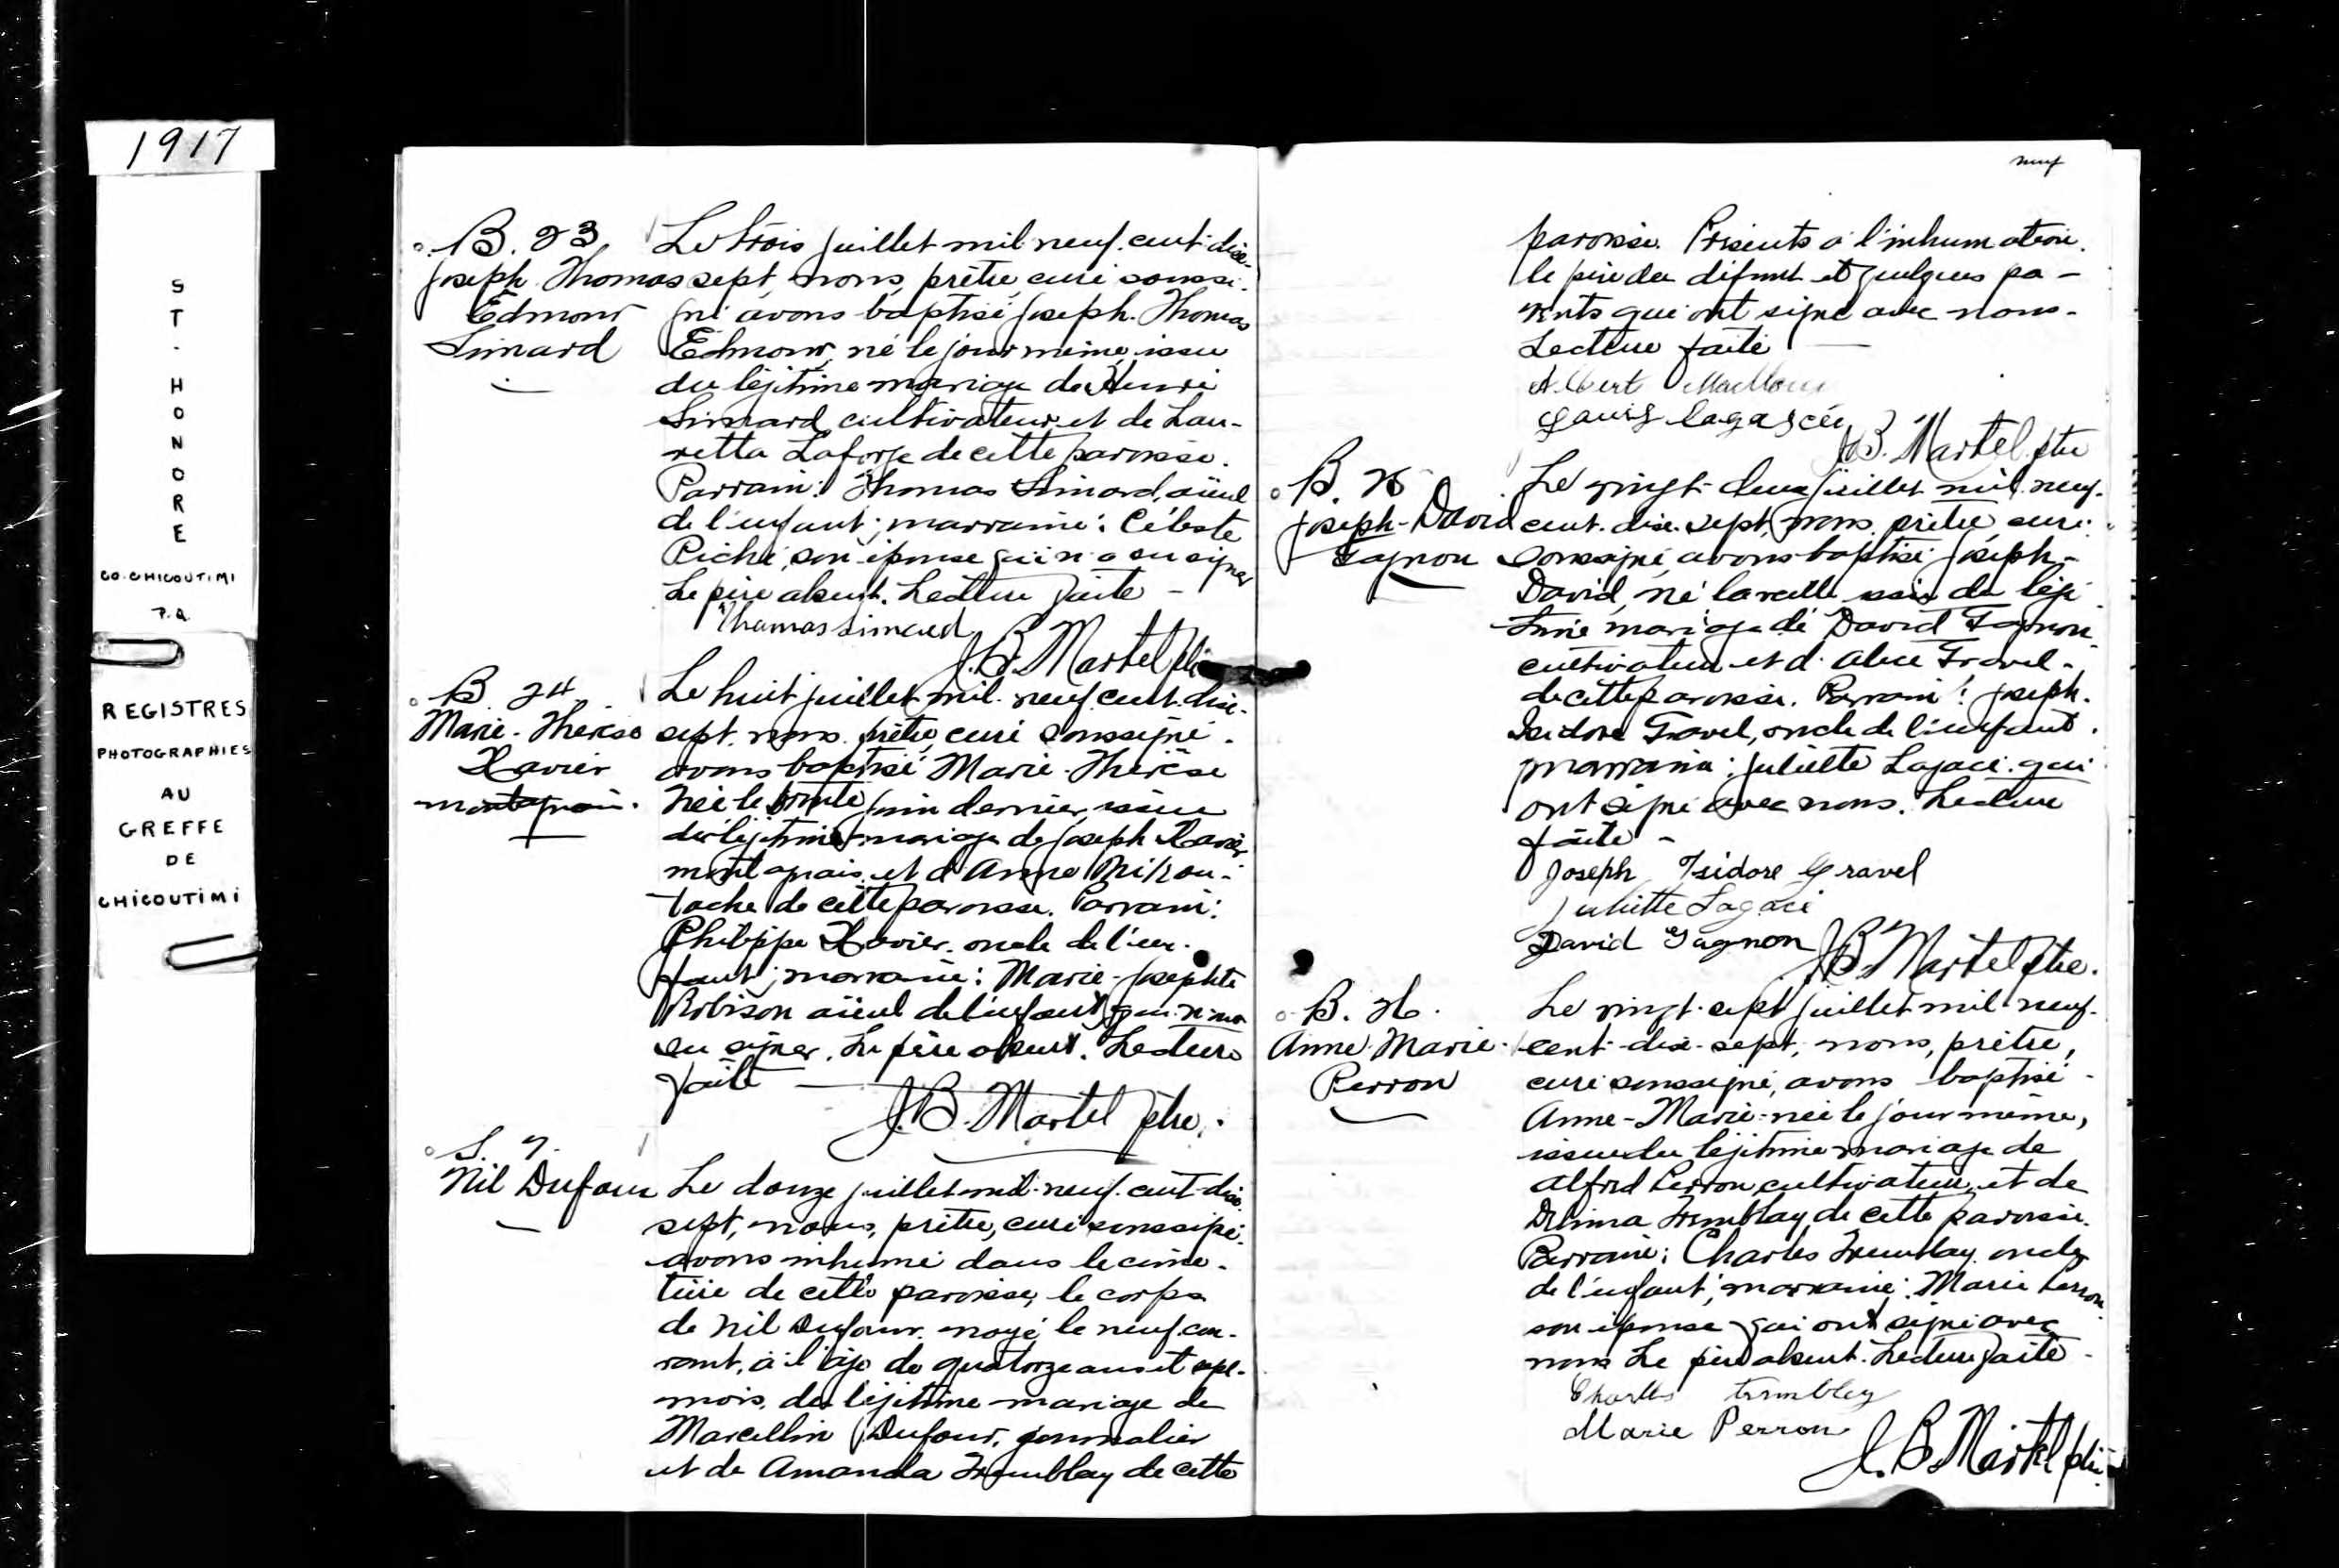 1917
ST. HONORE
CO. CHICOUTIMI
P.Q.
REGISTRES
PHOTOGRAPHIES
AU
GREFFE
DE
CHICOUTIMI
B. 23
Joseph Thomas
Edmond
Simard
Le trois juillet mil neuf cent dix-
sept, nous, prêtre, curé soussi-
gné avons baptisé Joseph Thomas
Edmond, né le jour même, issu
du légitime mariage de Henri
Simard cultivateur et de Lau-
retta Laforge de cette paroisse.
Parrain: Thomas Simard, aïeul
de l'enfant; marraine: Céleste
Piché, son épouse qui n'a su signer
Le père absent. Lecture faite -
Thomas Simard
J.B. Martel ptre
B. 24
Marie-Thérèse
Xavier
montagnais.
Le huit juillet mil neuf cent dix-
sept, nous prêtre, curé soussigné
avons baptisé Marie-Thérèse
née le trente juin dernier, issue
du légitime mariage de Joseph Xavier
montagnais et d'Anne
tache de cette paroisse. Parrain:
Philippe Xavier oncle de l'en-
fant; marraine: Marie-Josephte
Robison aïeul de l'enfant qui
su signer. Le père absent. Lecture
faite —
J.B. Martel ptre.
S. 7.
Nil Dufour
Le douze juillet mil neuf cent dix-
sept, nous, prêtre, curé soussigné
avons inhumé dans le cime-
tière de cette paroisse, le corps
de Nil Dufour noyé le neuf cou-
rant, à l'âge de quatorze ans et sept
mois, du légitime mariage de
Marcellin Dufour, journalier
et de Amanda Tremblay de cette
neuf
paroisse. Présents à l'inhumation
le père du défunt et quelques pa-
rents qui ont signé avec nous.
Lecture faite —
Albert
Louis lagascée
J.B. Martel ptre
B. 25
Joseph-David
Gagnon
Le vingt-deux juillet mil neuf
cent dix-sept, nous, prêtre, curé
soussigné, avons baptisé Joseph-
David, né la veille issu du légi
time mariage de David Gagnon
cultivateur et d'Alice Gravel
de cette paroisse. Parrain: Joseph-
Isidore Gravel, oncle de l'enfant
marraine: Juliette Lagacé qui
ont signé avec nous. Lecture
faite -
Joseph Isidore Gravel
Juliette Lagacé
David Gagnon
J.B. Martel ptre.
B. 26.
Anne-Marie
Perron
Le vingt-sept juillet mil neuf
cent dix-sept, nous, prêtre,
curé soussigné, avons baptisé
Anne-Marie née le jour même,
issue du légitime mariage de
Alfred Perron, cultivateur, et de
Delima Tremblay de cette paroisse.
Parrain: Charles Tremblay oncle
de l'enfant; marraine: Marie Perron
son épouse qui ont signé avec
nous Le père absent. Lecture faite -
Charles trembley
Marie Perron
J.B. Martel ptre.